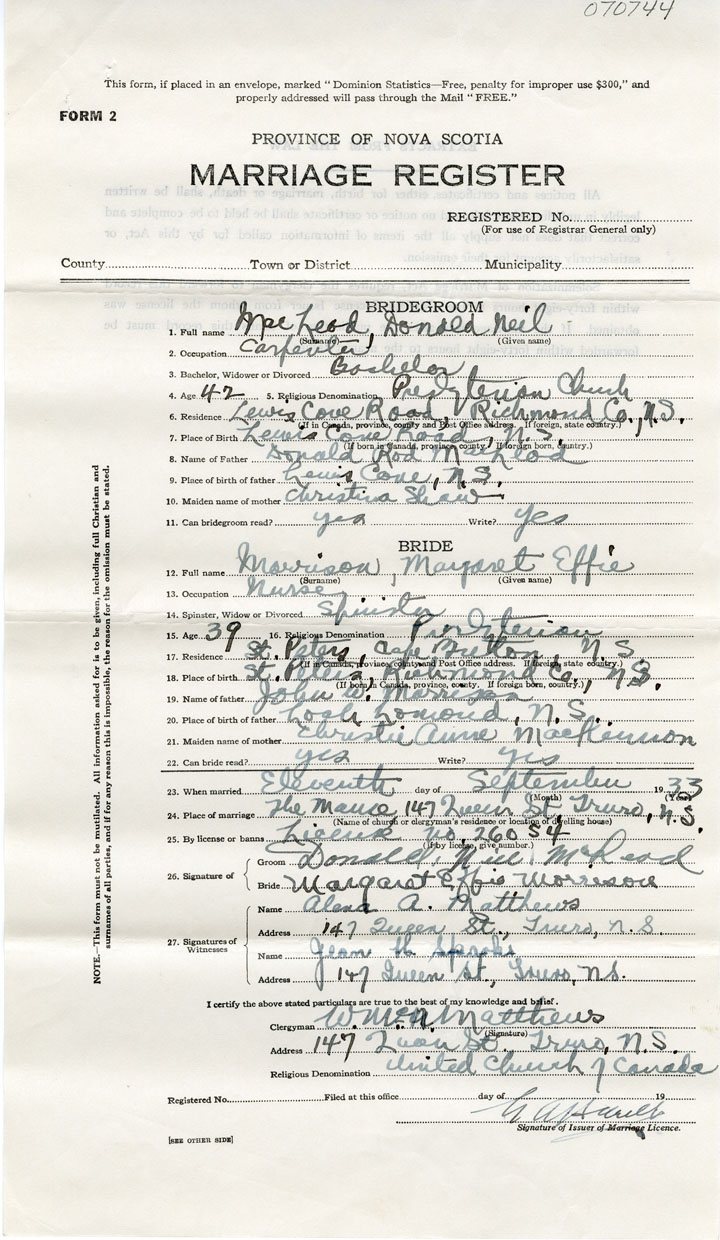 070744
This form, if placed in an envelope, marked " Dominion Statistics—Free, penalty for improper use $300," and
properly addressed will pass through the Mail " FREE."
FORM 2
PROVINCE OF NOVA SCOTIA
MARRIAGE REGISTER
REGISTERED No.
(For use of Registrar General only)
County Town or District Municipality
BRIDEGROOM
1. Full name MacLeod, Donald Neil
(Surname) (Given name)
2. Occupation Carpenter
3. Bachelor, Widower or Divorced Bachelor
4. Age 42 5. Religious Denomination Presbyterian Church
6. Residence Lewis Cove Road, Richmond Co., N.S.
(If in Canada, province, county and Post Office address. If foreign, state country.)
7. Place of Birth Lewis Cove Road, N.S.
(If born in Canada, province, county. If foreign born, country.)
8. Name of Father Donald Rod MacLeod
9. Place of birth of father Lewis Cove, N.S.
10. Maiden name of mother Christina Shaw
11. Can bridegroom read? yes Write? Yes
BRIDE
12. Full name Morrison, Margaret Effie
(Surname) (Given name)
13. Occupation Nurse
14. Spinster, Widow or Divorced Spinster
15. Age 39 16. Religious Denomination Presbyterian
17. Residence St. Peters, Cape Breton, N.S.
(If in Canada, province, county and Post Office address. If foreign, state country.)
18. Place of birth St. Peters, Richmond Co., N.S.
(If born in Canada, province, county. If foreign born, country.)
19. Name of father John D. Morrison
20. Place of birth of father Loch Lomond, N.S.
21. Maiden name of mother Christie Anne MacKinnon
22. Can bride read? yes Write? yes
23. When married Eleventh day of September 1933
(Month) (Year)
24. Place of marriage The Manse 147 Queen St., Truro, N.S.
(Name of church or clergyman's residence or location of dwelling house)
25. By license or banns License no. 26054
(If by license, give number.)
26. Signature of { Groom Donald Neil McLeod
Bride Margaret Effie Morrison
27. Signatures of Witnesses { Name Alexa A. Matthews
Address 147 Queen St., Truro, N.S.
Name Jean H.
Address 147 Queen St., Truro, N.S.
I certify the above stated particulars are true to the best of my knowledge and belief.
Clergyman Matthews
(Signature)
Address 147 Queen St. Truro, N.S.
Religious Denomination United Church of Canada
Registered No. Filed at this office day of 19
Signature of Issuer of Marriage Licence.
[SEE OTHER SIDE]
NOTE.—This form must not be mutilated. All information asked for is to be given, including full Christian and
surnames of all parties, and if for any reason this is impossible, the reason for the omission must be stated.